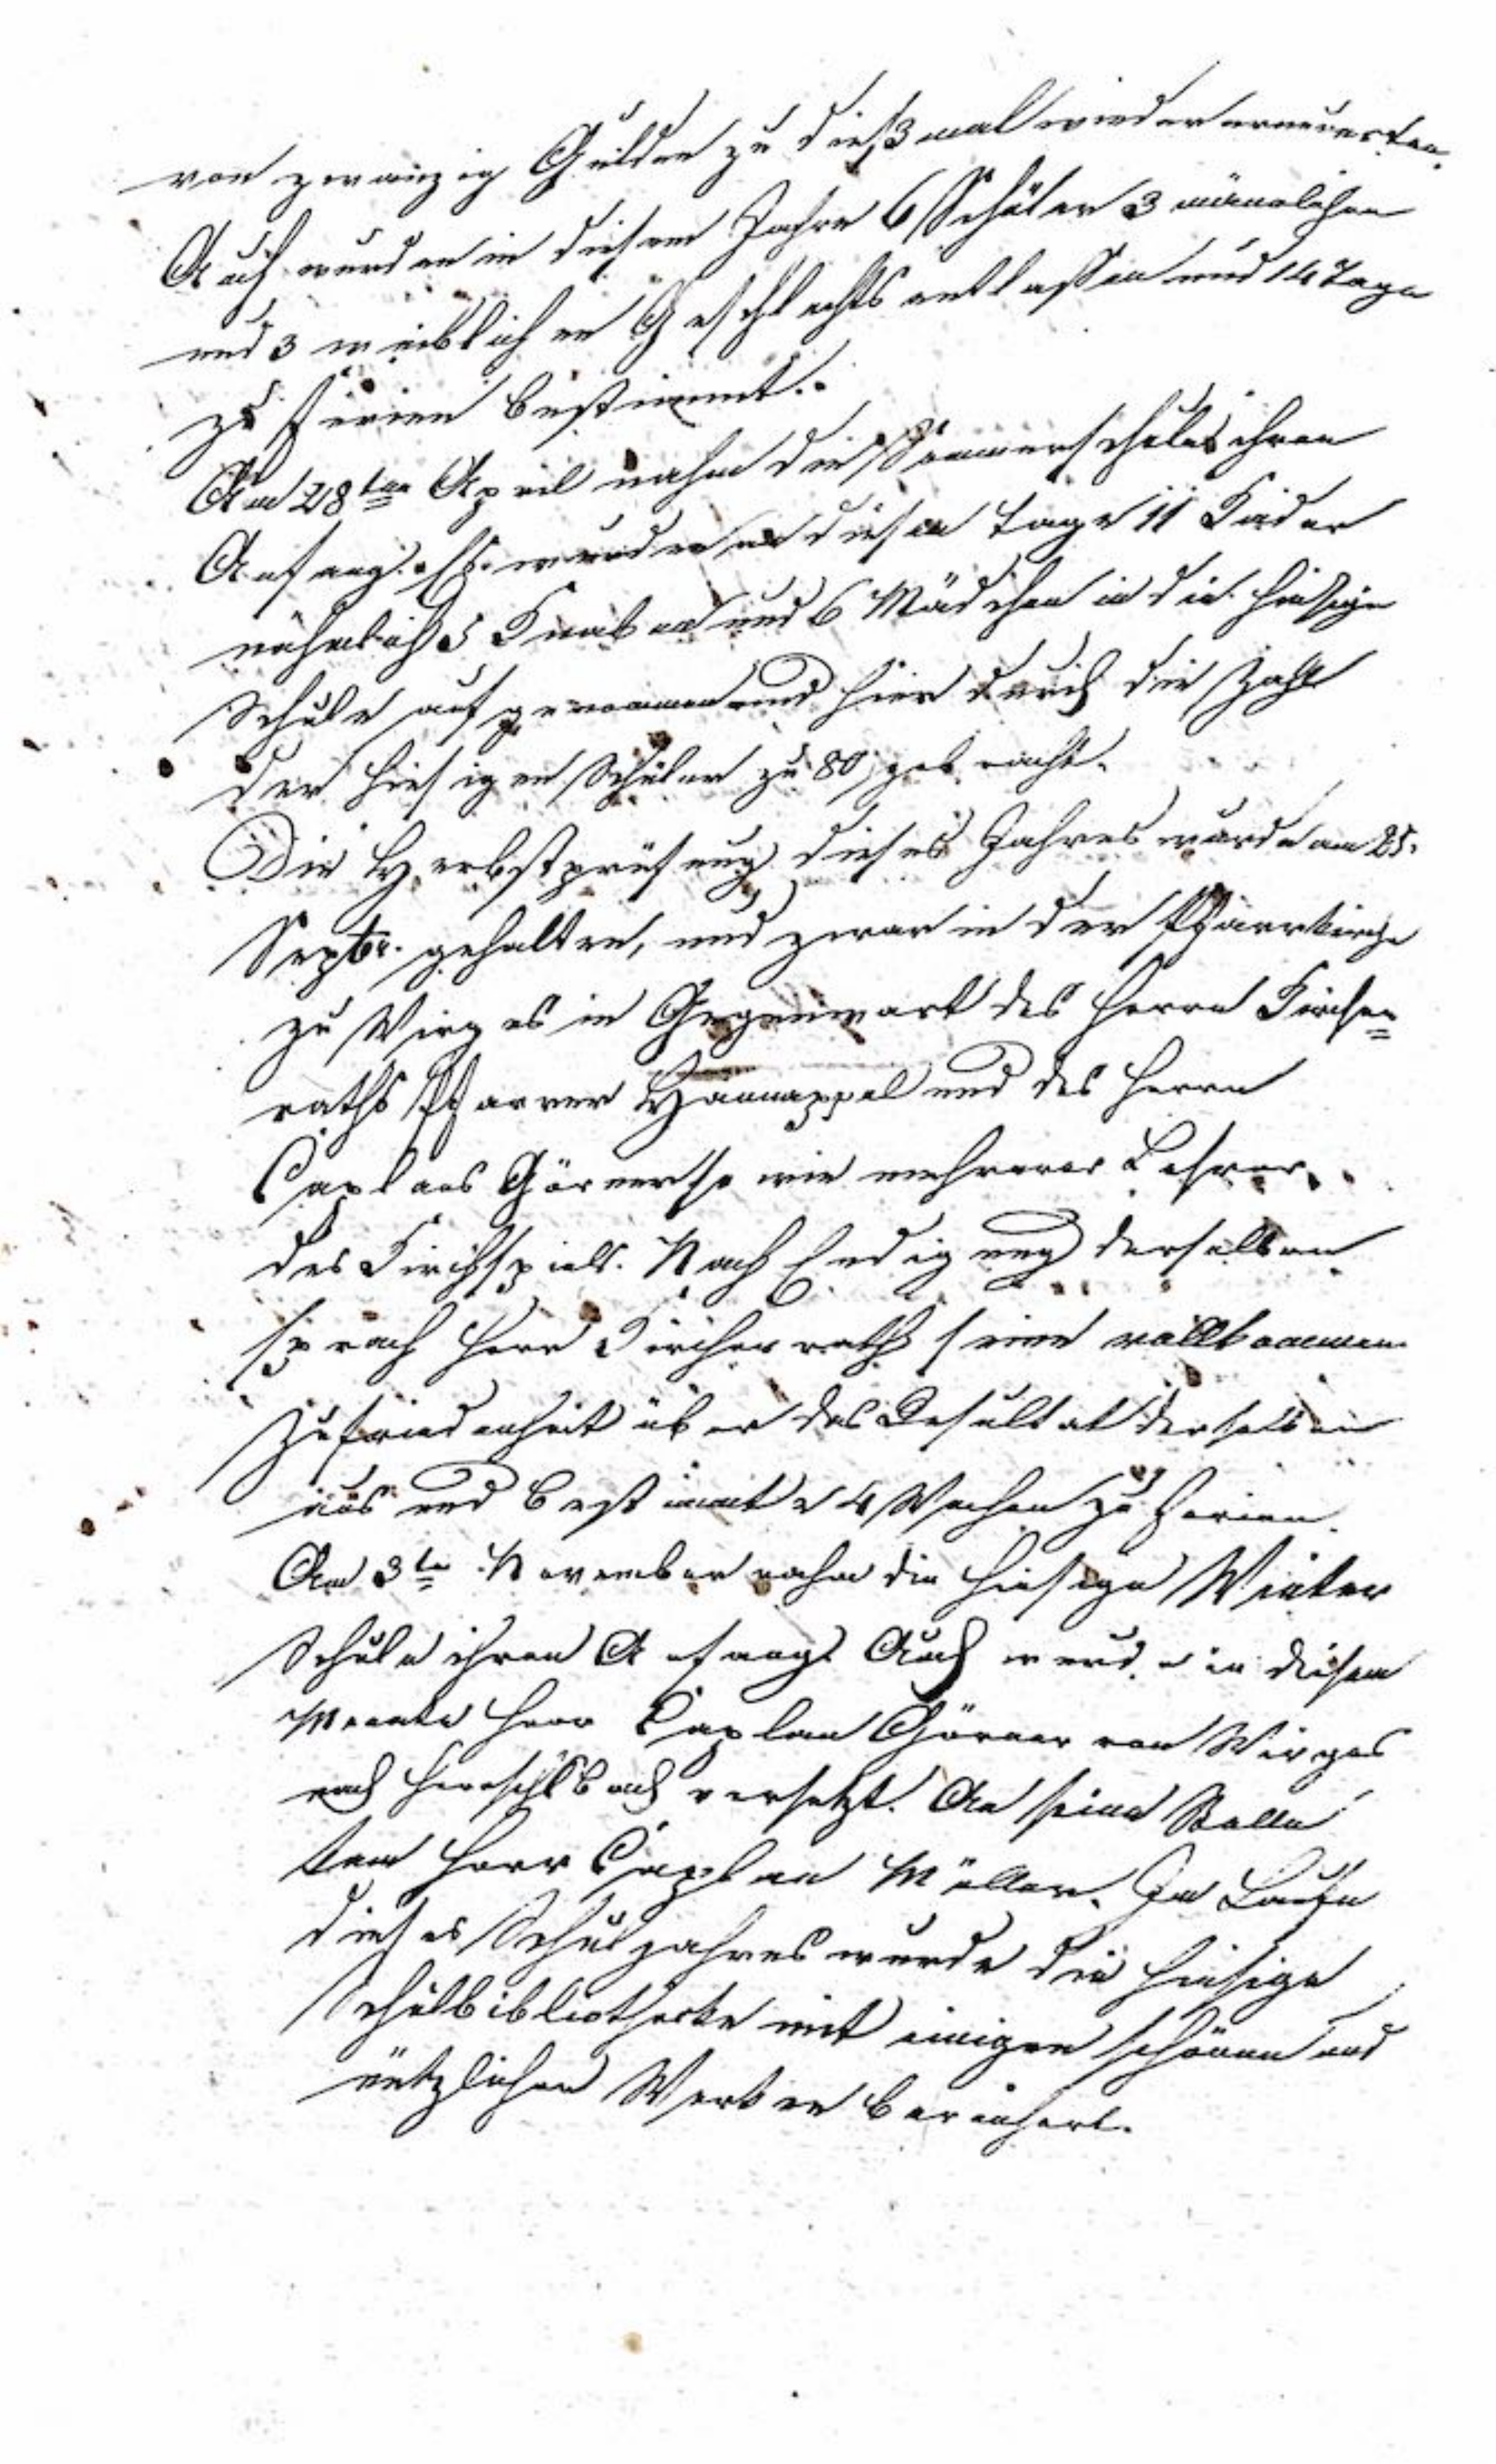 von zwanzig Gulden zu dießmal wieder erneuerten.
Auch wurden in diesem Jahre 6 Schüler 3 männlichen
und 3 weiblichen Geschlechts entlassen und 14 Tage
zu Ferien bestimmt.
Am 28ten April nahm die Sommerschule ihren
Anfang. Es wurden an diesem Tage 11 Kinder
nähmlich 5 Knaben und 6 Mädchen in die hiesige
Schule aufgenommen und hierdurch die Zahl
der hiesigen Schüler zu 80 gebracht.
Die Herbstprüfung dieses Jahres wurde am 25.
Septbr. gehalten, und zwar in der Pfarrkirche
zu Wirges in Gegenwart des Herrn Kirchen=
raths Pfarrer Hannappel und des Herrn
Caplans Görner so wie mehrerer Lehrer
des Kirchspiels. Nach Endigung derselben
sprach Herr Kirchenrath seine vollkommene
Zufriedenheit über das Resultat derselben
aus und bestimmte 4 Wochen zu Ferien.
Am 3te November nahm die hiesige Winter
Schule ihren Anfang. Auch wurde in diesem
Monate Herr Caplan Görner von Wirges
nach versetzt. An seine Stelle
kam Herr Caplan Müller. Im Laufe
dieses Schuljahres wurde die hiesige
Schulbibliothecke mit einigen schönen und
nützlichen Werken bereichert.